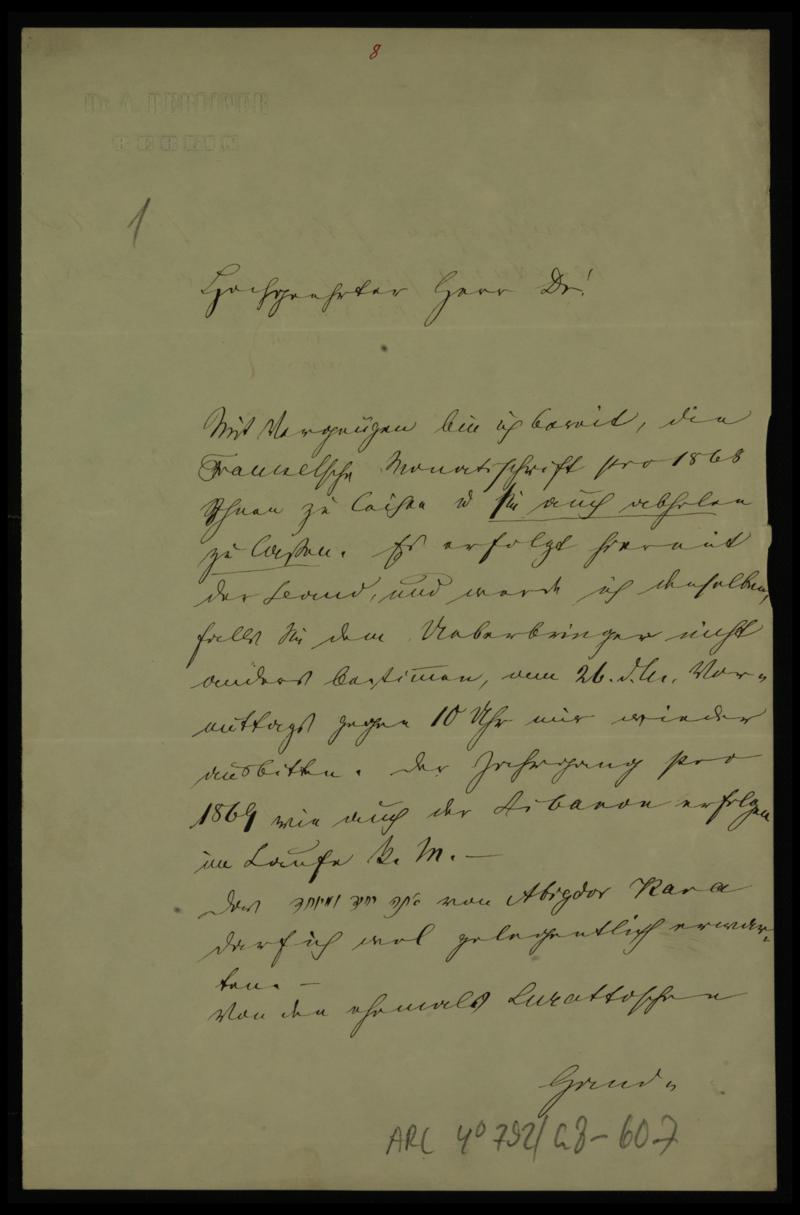 8
Dr. A. BERLINER
BERLIN
1
Hochgeehrter Herr Dr!
Mit Vergnügen bin ich bereit, die
Frankelsche Monatsschrift pro 1868
Ihnen zu leihen u sie auch abholen
zu lassen. Es erfolgt hiermit
der Band, und werde ich denselben,
falls Sie dem Ueberbringer nicht
anders bestimmen, am 26. d. M. Vor-
mittags gegen 10 Uhr mir wieder
ausbitten. Der Jahrgang pro
1869 wie auch der Libanon erfolgen
im Laufe k. M. —
Das אחד יחיד ומיוחד von Abigdor Kara
darf ich wol gelegentlich erwar-
ten. —
Von den ehemals Luzattoschen
Hand-
ARC 4° 792/G8-607